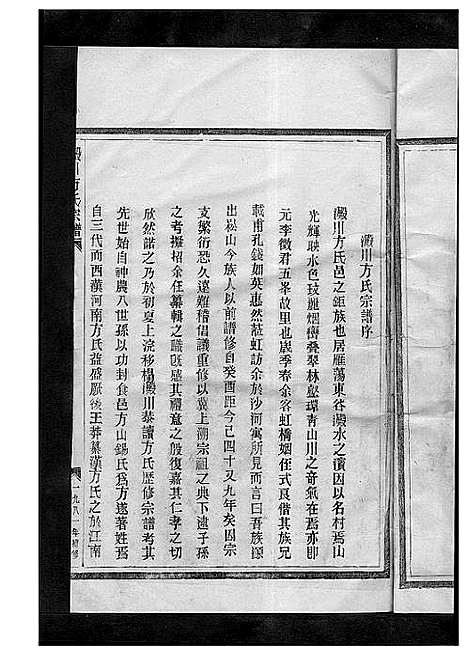 澱川方氏宗譜序
澱川方氏邑之鉅族也居雁蕩東谷澱水之濆因以名村焉山
光輝映水色玻璃烟巒疊翠林壑環靑山川之奇氣在焉亦卽
元李徵君五峯故里也歲季春余客虹橋姻侄式良偕其族兄
載甫孔錢如英惠然蒞虹訪余於沙河寓所見而言曰吾族源
出崧山今族人以前譜修自癸酉距今已四十又九年矣因宗
支繁衍恐久遠難稽倡議重修以冀上溯宗祖之典下逮子孫
之考擬招余任纂輯之職旣感其禮意之殷復嘉其仁孝之切
欣然諾之乃於初夏上浣移榻澱川恭讀方氏歷修宗譜考其
先世始自神農八世孫以功封食邑方山錫氏爲方遂著姓焉
自三代而西漢河南方氏益盛厥後王莽篡漢方氏之於江南
川方氏宗譜
一九八一年重修